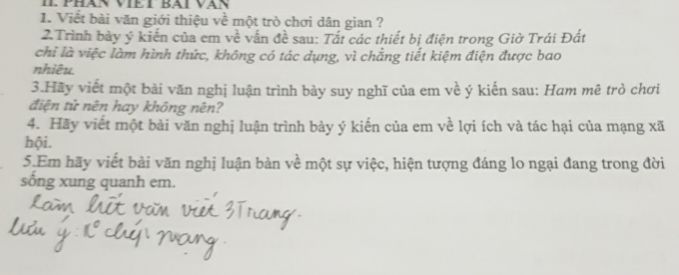 II. PHẦN VIẾT BÀI VĂN
1. Viết bài văn giới thiệu về một trò chơi dân gian ?
2.Trình bày ý kiến của em về vấn đề sau: Tắt các thiết bị điện trong Giờ Trái Đất
chỉ là việc làm hình thức, không có tác dụng, vì chẳng tiết kiệm điện được bao
nhiêu.
3.Hãy viết một bài văn nghị luận trình bày suy nghĩ của em về ý kiến sau: Ham mê trò chơi
điện tử nên hay không nên?
4. Hãy viết một bài văn nghị luận trình bày ý kiến của em về lợi ích và tác hại của mạng xã
hội.
5.Em hãy viết bài văn nghị luận bàn về một sự việc, hiện tượng đáng lo ngại đang trong đời
sống xung quanh em.
Làm hết văn viết 3 Trang.
Lưu ý: K° chép mạng.